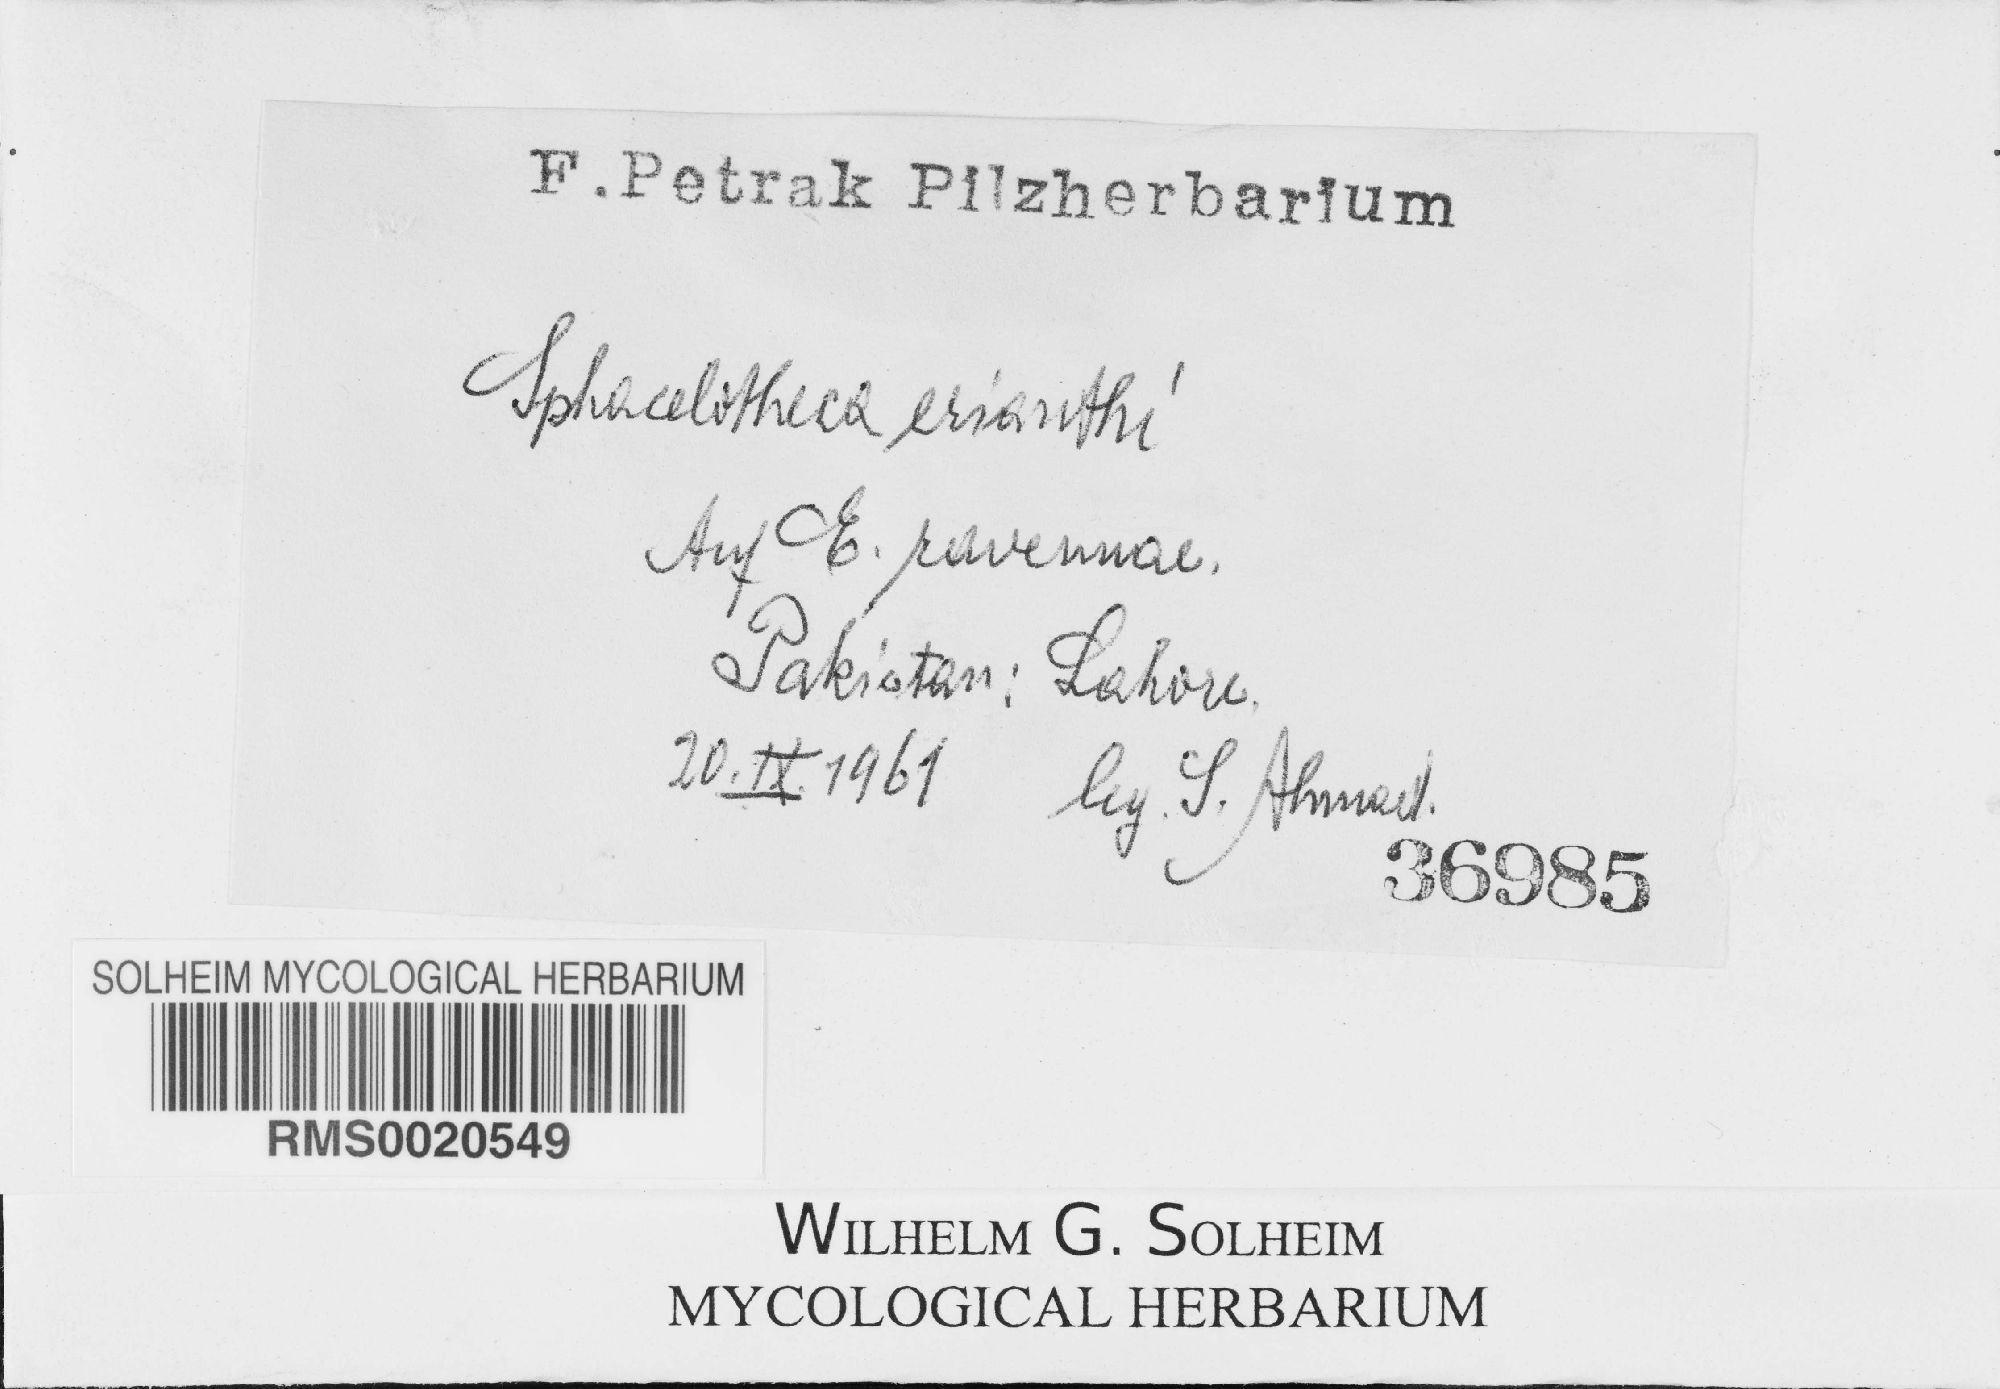 F. Petrak Pilzherbarium
Sphacelotheca erianthi
Auf E. ravennae.
Pakistan: Lahore.
20. IX. 1961 leg. S. Ahmad.
36985
SOLHEIM MYCOLOGICAL HERBARIUM
RMS0020549
WILHELM G. SOLHEIM
MYCOLOGICAL HERBARIUM